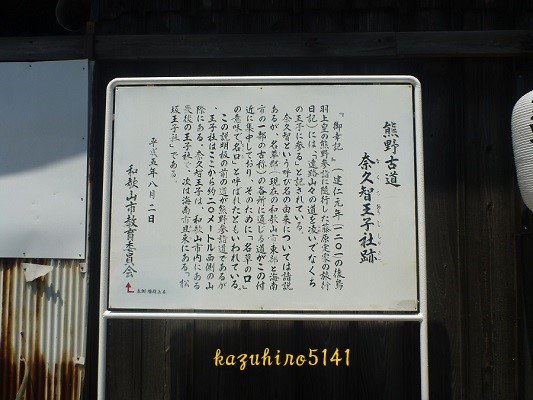 熊野古道
奈久智王子社跡
『御幸記』(建仁元年(一二〇一)の後鳥
羽上皇の熊野参詣に随行した藤原定家の旅行
日記)には、「遠路山々の道を凌いでなくち
の王子に参る」と記されている。
奈久智という呼び名の由来については諸説
あるが、名草郡(現在の和歌山市東部と海南
市の一部の古称)の各所に通じる道がこの付
近に集中しており、そのために「名草の口」
の意味で「名口」と呼ばれたともいわれている。
この説明板の前の道が熊野参詣道であるが
、王子社はここから約一二〇メートル西側の山
際にある。奈久智王子は、和歌山市内にある
最後の王子社で、次は海南市且来にある『松
坂王子社』である。
平成五年八月二日
和歌山市教育委員会
kazuhiro5141